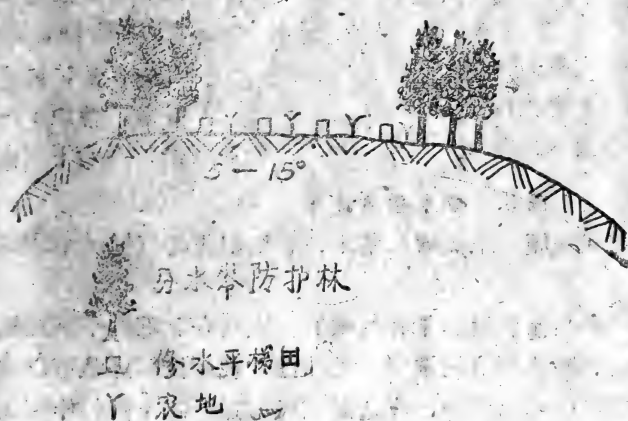 5—15°
分水岭防护林
修水平梯田
农地